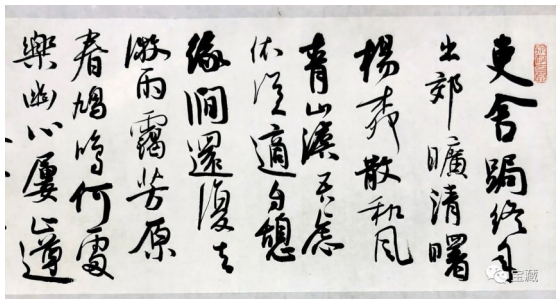 吏舍跼終年
出郊曠清曙
楊柳散和風
青山澹吾慮
依叢適自憩
緣澗還復去
微雨靄芳原
春鳩鳴何處
樂幽心屢止遵
宝藏